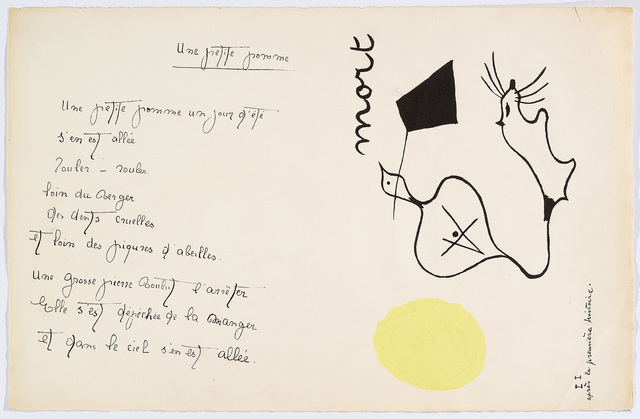 Une petite pomme
Une petite pomme un jour d'été
s'en est allée
Rouler – rouler
loin du Berger
des dents cruelles
et loin des piqures d'abeilles.
Une grosse pierre voulut l'arrêter
Elle s'est dépêchée de la manger
et dans le ciel s'en est allée.
mort
II
après la première histoire.